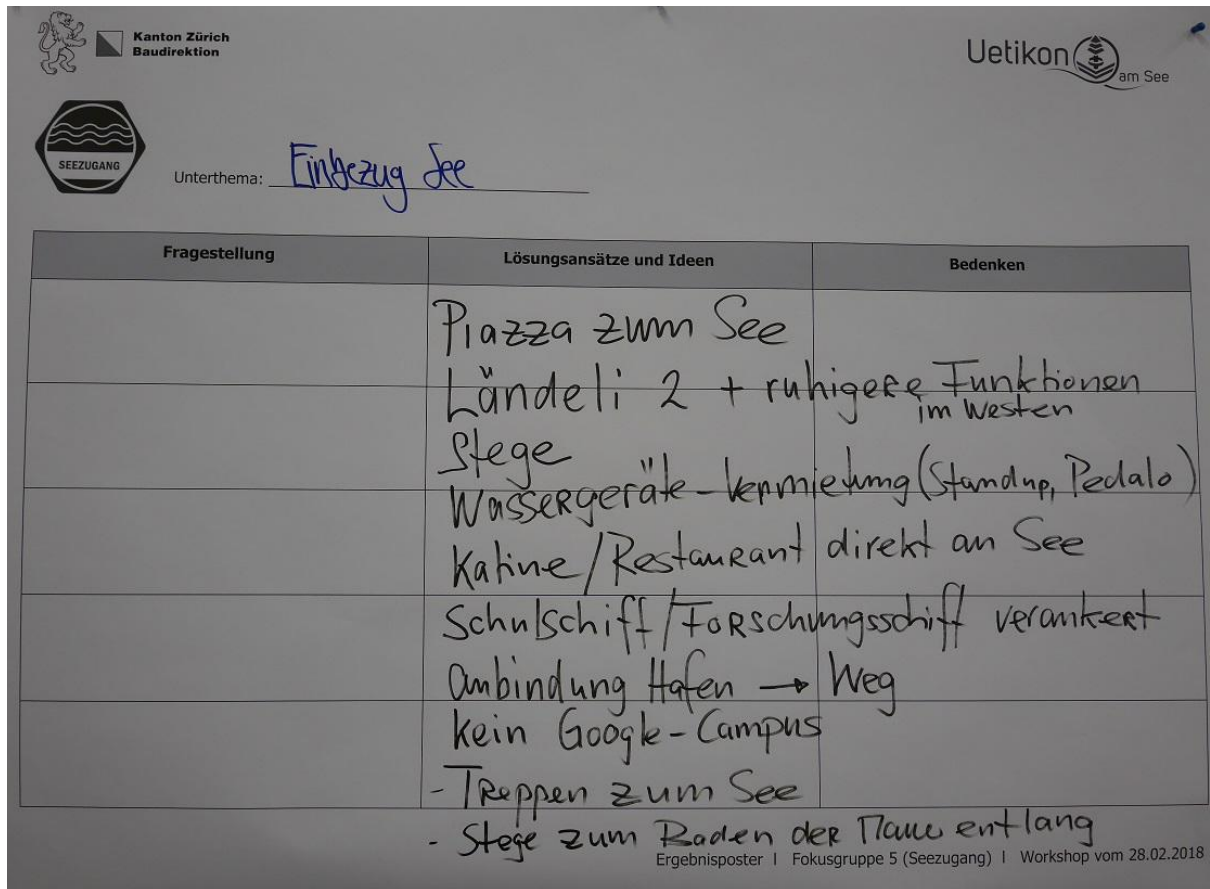 Kanton Zürich
Baudirektion
Uetikon am See
SEEZUGANG
Unterthema: Einbezug See
Fragestellung
Lösungsansätze und Ideen
Bedenken
Piazza zum See
Ländeli 2 + ruhigere Funktionen
im Westen
Stege
Wassergeräte-Vermietung (Standup, Pedalo)
Katine/Restaurant direkt an See
Schulschiff/Forschungsschiff verankert
Anbindung Hafen → Weg
kein Google-Campus
- Treppen zum See
- Stege zum Baden der Mauer entlang
Ergebnisposter I Fokusgruppe 5 (Seezugang) I Workshop vom 28.02.2018